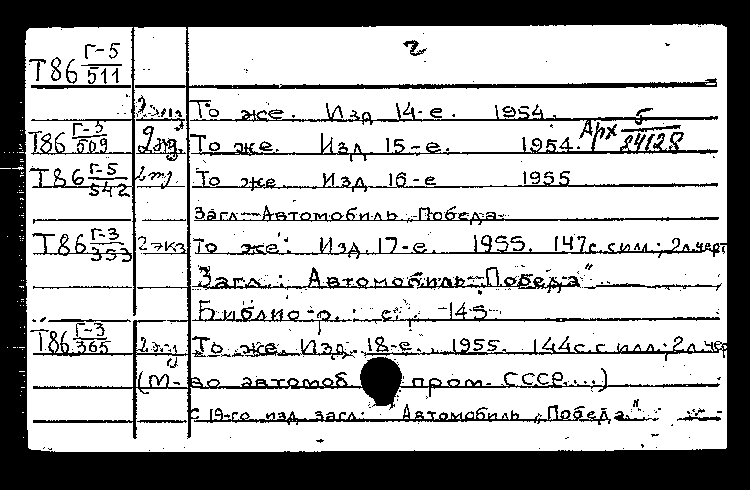 2
Т86 Г-5/511
2 экз То же. Изд 14-е. 1954.
Т86 Г-3/509 2 экз. То же. Изд. 15-е. 1954. Арх Б/24128
Т86 Г-5/542 2 экз. То же Изд 16-е 1955
Загл-Автомобиль „Победа
Т86 Г-3/353 2 экз То же. Изд. 17-е. 1955. 147с. с илл.; 2л. черт
Загл.: Автомобиль-Победа"
Библиогр.: стр. 145
Т86 Г-3/365 2 экз То же. Изд. 18-е. 1955. 144с. с илл.; 2л. чер
(М-во автомоб пром. СССР....)
С 19-го изд. загл: Автомобиль „Победа."